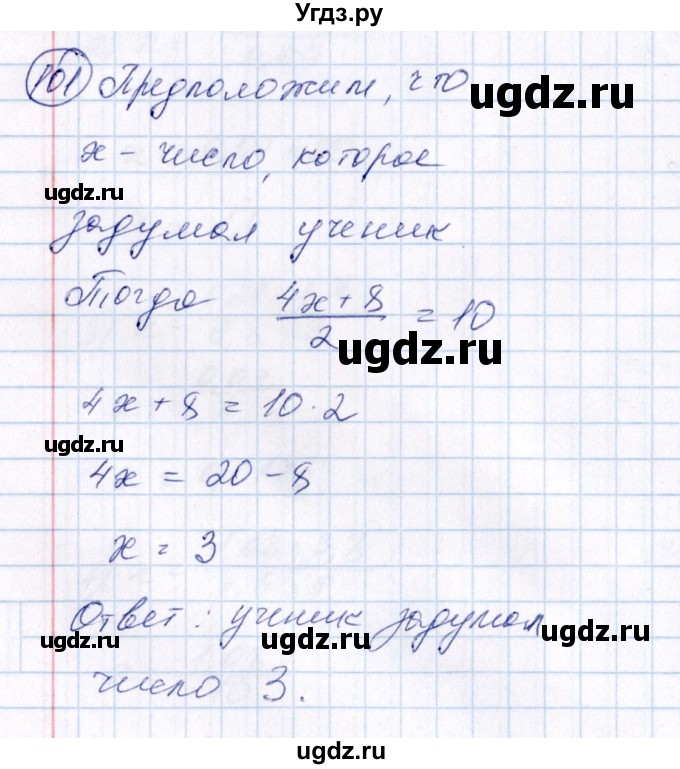 Угдз.ру
101 Предположим, что
ugdz.ru
х - число, которое
ugdz.ru
задумал ученик
Тогда (4x + 8)/2 = 10
ugdz.ru
4x + 8 = 10 · 2
ugdz.ru
4x = 20 - 8
x = 3
Ответ: ученик задумал
ugdz.ru ugdz.ru ugdz.ru
число 3.
ugdz.ru